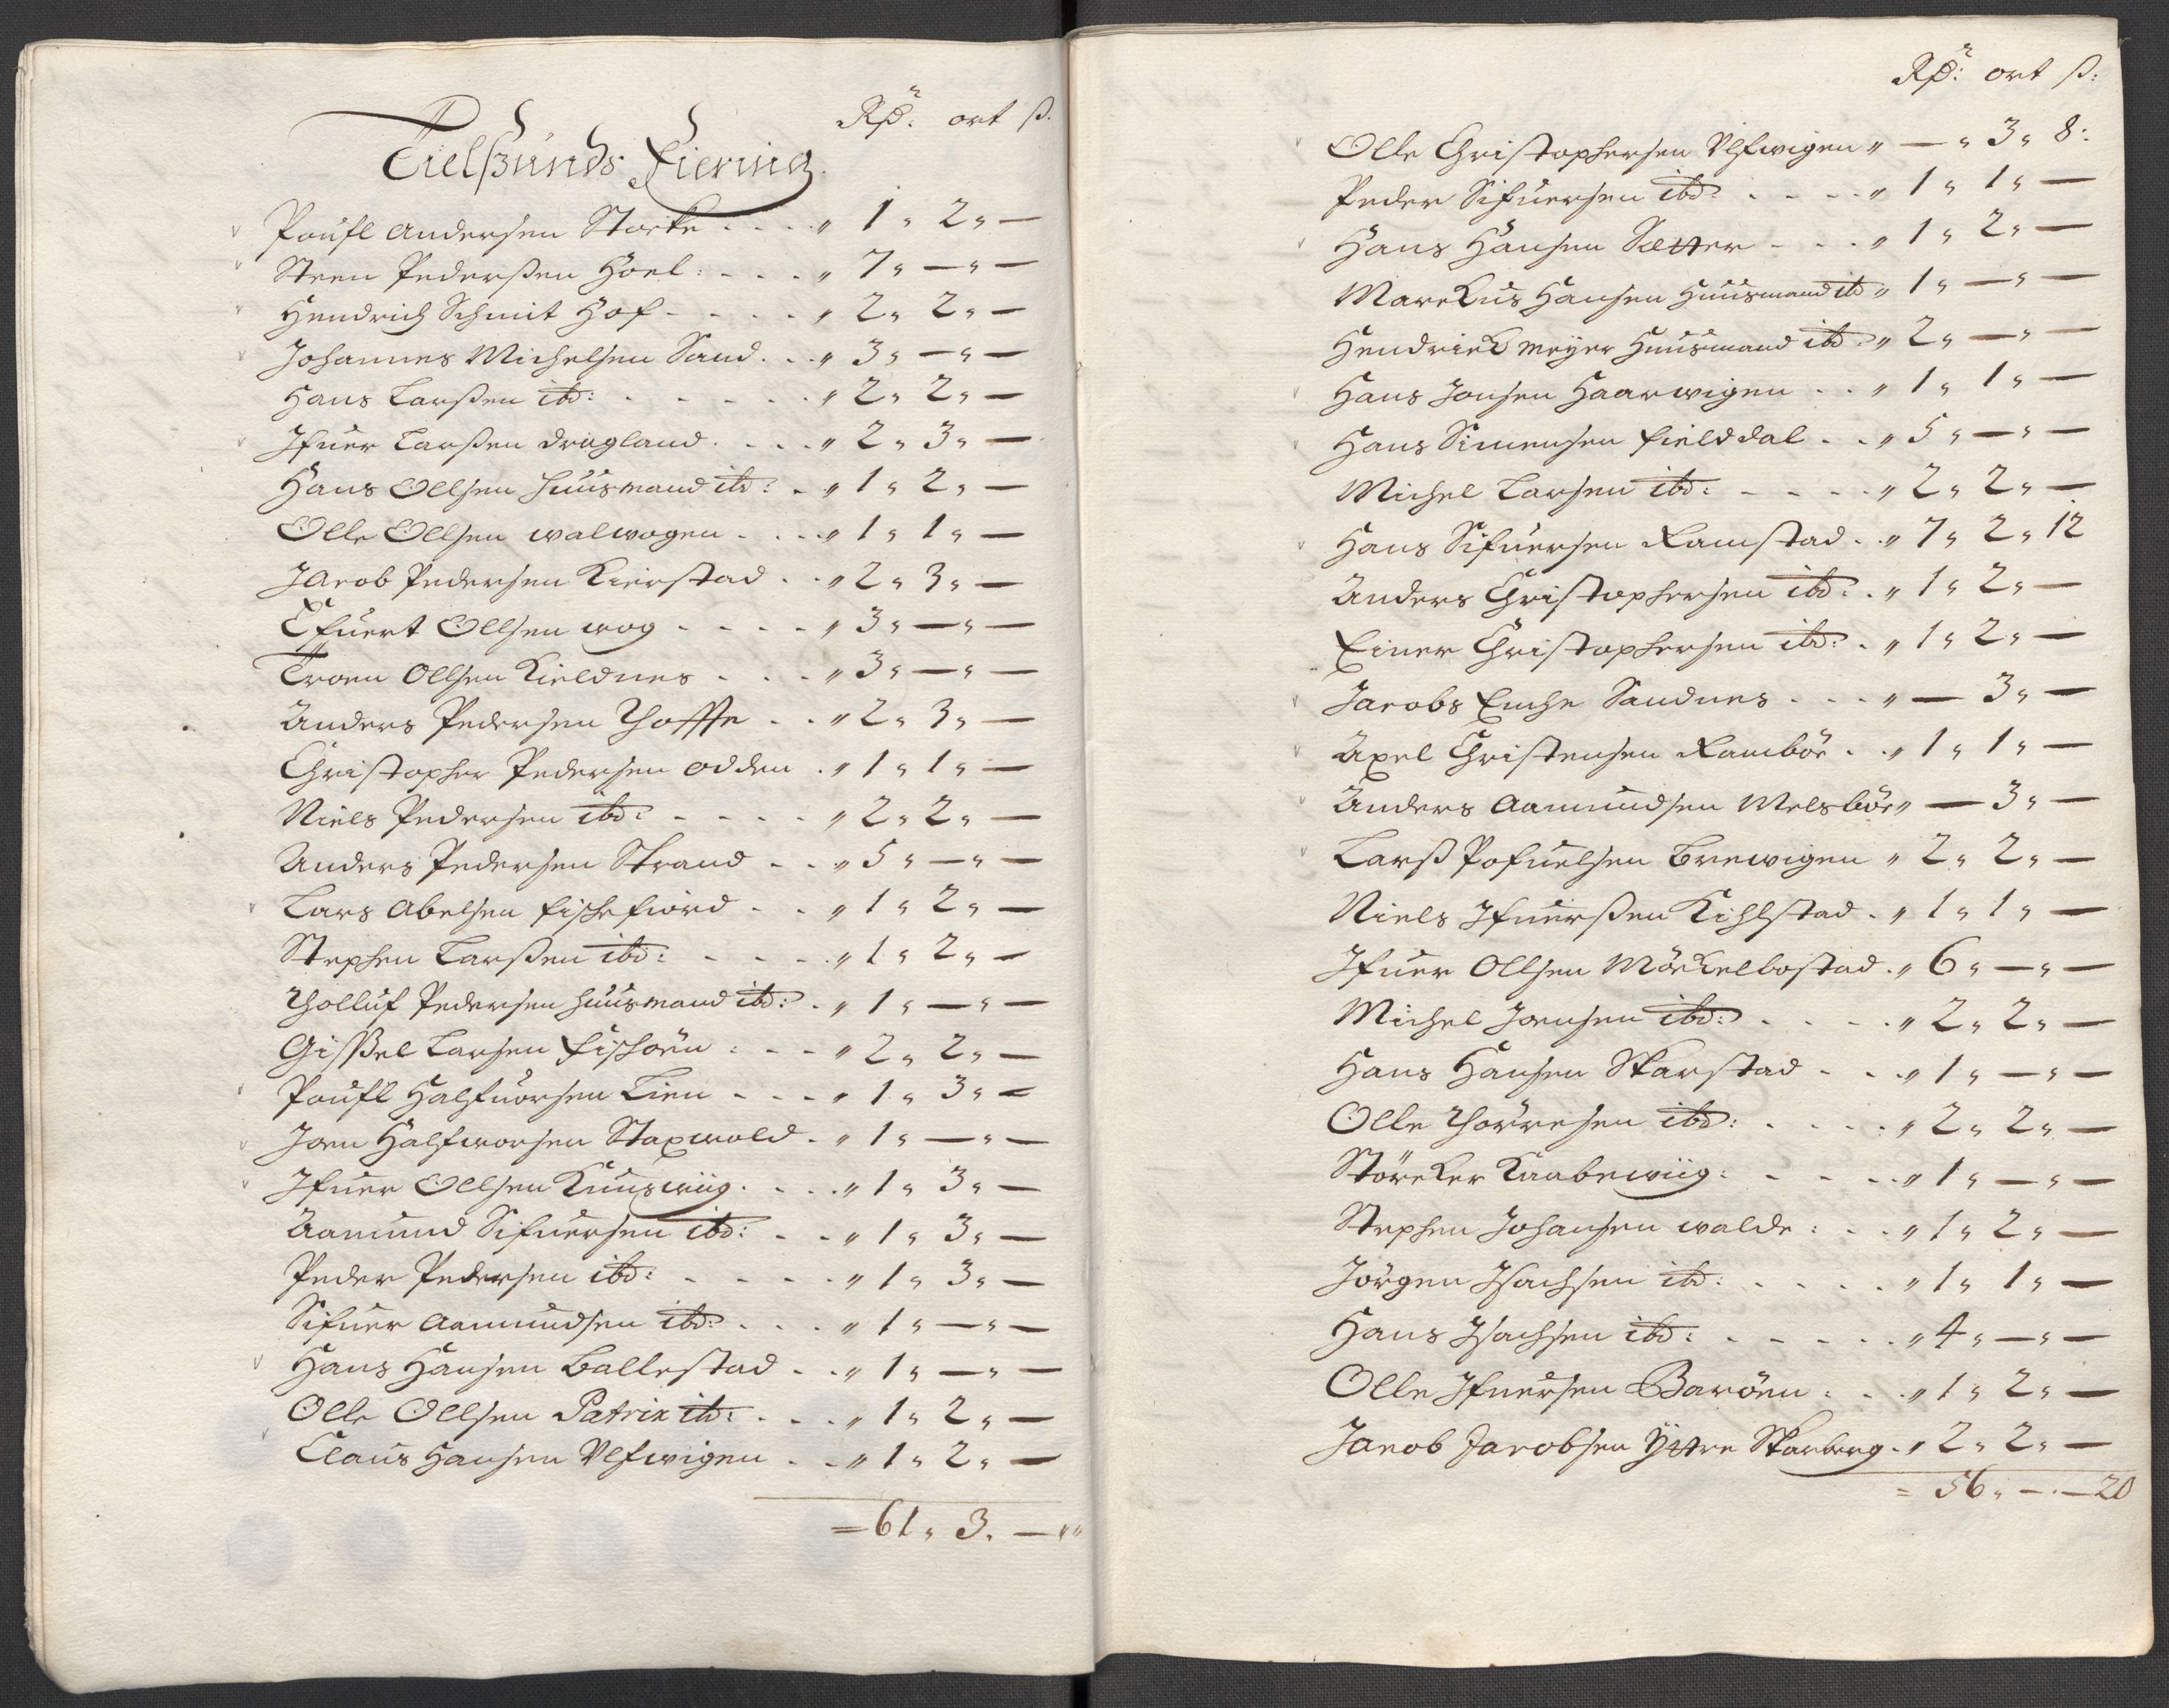 Rdr: ort ß.
Tielsunds Fiering
Poufl Andersen Storke .... " 1 " 2 " —
Steen Pederßen Hoel: ... " 7 " — " —
Hendrich Schmit Hof .... " 2 " 2 " —
Johannes Michelsen Sand ... " 3 " — " —
Hans Larßen ibd: ..... " 2 " 2 " —
Ifuer Larßen dragland .... " 2 " 3 " —
Hans Ollsen Huusmand ibd: . " 1 " 2 " —
Olle Ollsen walwogen .... " 1 " 1 " —
Jacob Pedersen Kierstad .. " 2 " 3 " —
Efuert Ollsen wog .... " 3 " — " —
Troen Ollsen Kieldnes ... " 3 " — " —
Anders Pedersen Thoffte .. " 2 " 3 " —
Christopher Pedersen odden . " 1 " 1 " —
Niels Pedersen ibd: .... " 2 " 2 " —
Anders Pedersen Strand .. " 5 " — " —
Lars Abelsen fiskefiord .. " 1 " 2 " —
Stephen Larßen ibd: .... " 1 " 2 " —
Tholluf Pedersen huusmand ibd: . " 1 " — " —
Gißel Larsen fiskøen : .. " 2 " 2 " —
Poufl Halfuorsen Lien ... " 1 " 3 " —
Joen Halfworsen Staxwold . " 1 " — " —
Ifuer Ollsen Kuuswiig .... " 1 " 3 " —
Aamund Sifuersen ibd: .. " 1 " 3 " —
Peder Pedersen ibd: .... " 1 " 3 " —
Sifuer Aamundsen ibd: ... " 1 " — " —
Hans Hansen Ballestad .. " 1 " — " —
Olle Ollsen Patrix ibd: ... " 1 " 2 " —
Claus Hansen Ulfwigen .. " 1 " 2 " —
= 61 " 3. — ""
Rdr: ort ß:
Olle Christophersen Ulfwigen " — " 3 " 8:
Peder Sifuersen ibd: .... " 1 " 1 " —
Hans Hansen Sætter ... " 1 " 2 " —
Marckus Hansen Huusmand ibd " 1 " — " —
Hendrick Meyer Huusmand ibd . " 2 " — " —
Hans Jonsen Haarwigen .. " 1 " 1 " —
Hans Simensen fielddal .. " 5 " — " —
Michel Larsen ibd: .... " 2 " 2 " —
Hans Sifuersen Ramstad .. " 7 " 2 " 12
Anders Christophersen ibd: . " 1 " 2 " —
Einer Christophersen ibd: . " 1 " 2 " —
Jacobs Enche Sandnes ... " — 3 " —
Axel Christensen Ramböe .. " 1 " 1 " —
Anders Aamundsen Melsböe " — 3 " —
Larß Pofuelsen Brewigen " 2 " 2 " —
Niels Ifuerßen Kihlstad . " 1 " 1 " —
Ifuer Ollsen Möckelbostad . " 6 " — " —
Michel Joensen ibd: .... " 2 " 2 " —
Hans Hansen Skarstad ... " 1 " — " —
Olle Thorresen ibd: .... " 2 " 2 " —
Störcker Kaabewiig: .... " 1 " — " —
Stephen Johansen walde : .. " 1 " 2 " —
Jörgen Isachsen ibd: .... " 1 " 1 " —
Hans Isachsen ibd: ..... " 4 " — " —
Olle Ifuersen Baröen : .. " 1 " 2 " —
Jacob Jacobsen Ÿttre Skarberg . " 2 " 2 " —
= 56 " — . — 20